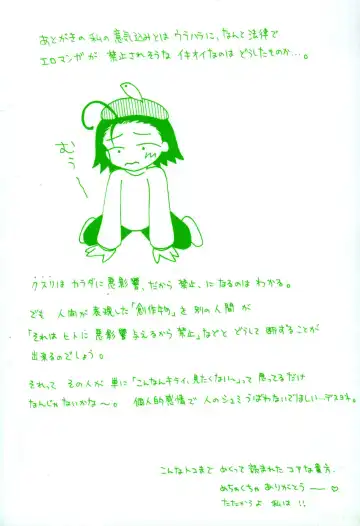 あとがきの 私の 意気込みとは ウラハラに、なんと 法律で
エロマンガ が 禁止されそうな イキオイなのは どうしたものか…。
むぅ〜
クスリは カラダに 悪影響、だから 禁止、に なるのは わかる。
でも 人間が 表現した「創作物」を 別の人間 が
「それは ヒトに 悪影響 与えるから 禁止」などと どうして 断することが
出来るのでしょう。
それって その人が 単に「こんなんキライ、見たくない〜」って 思ってるだけ
なんじゃないかな〜。 個人的感情で 人の シュミ うばわないでほしい…デスヨネ。
こんなトコまで めくって 読まれた コアな貴方、
めちゃくちゃ ありがとう ー ♡
たたかうよ 私は !!